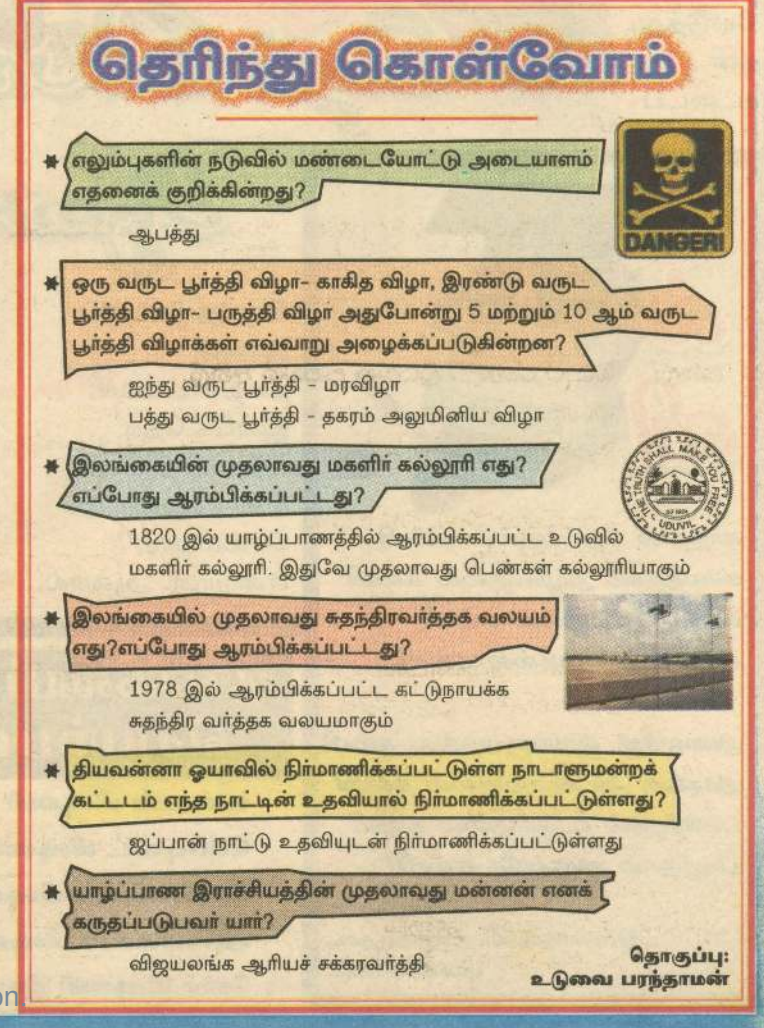 தெரிந்து கொள்வோம்
* எலும்புகளின் நடுவில் மண்டையோட்டு அடையாளம்
எதனைக் குறிக்கின்றது?
DANGER!
ஆபத்து
* ஒரு வருட பூர்த்தி விழா- காகித விழா, இரண்டு வருட
பூர்த்தி விழா- பருத்தி விழா அதுபோன்று 5 மற்றும் 10 ஆம் வருட
பூர்த்தி விழாக்கள் எவ்வாறு அழைக்கப்படுகின்றன?
ஐந்து வருட பூர்த்தி - மரவிழா
பத்து வருட பூர்த்தி - தகரம் அலுமினிய விழா
* இலங்கையின் முதலாவது மகளிர் கல்லூரி எது?
எப்போது ஆரம்பிக்கப்பட்டது?
THE TRUTH SHALL MAKE YOU FREE
UDUVIL
1820 இல் யாழ்ப்பாணத்தில் ஆரம்பிக்கப்பட்ட உடுவில்
மகளிர் கல்லூரி. இதுவே முதலாவது பெண்கள் கல்லூரியாகும்
* இலங்கையில் முதலாவது சுதந்திரவர்த்தக வலயம்
எது?எப்போது ஆரம்பிக்கப்பட்டது?
1978 இல் ஆரம்பிக்கப்பட்ட கட்டுநாயக்க
சுதந்திர வர்த்தக வலயமாகும்
* தியவன்னா ஓயாவில் நிர்மாணிக்கப்பட்டுள்ள நாடாளுமன்றக்
கட்டடம் எந்த நாட்டின் உதவியால் நிர்மாணிக்கப்பட்டுள்ளது?
ஜப்பான் நாட்டு உதவியுடன் நிர்மாணிக்கப்பட்டுள்ளது
* யாழ்ப்பாண இராச்சியத்தின் முதலாவது மன்னன் எனக்
கருதப்படுபவர் யார்?
விஜயலங்க ஆரியச் சக்கரவர்த்தி
தொகுப்பு:
உடுவை பரந்தாமன்